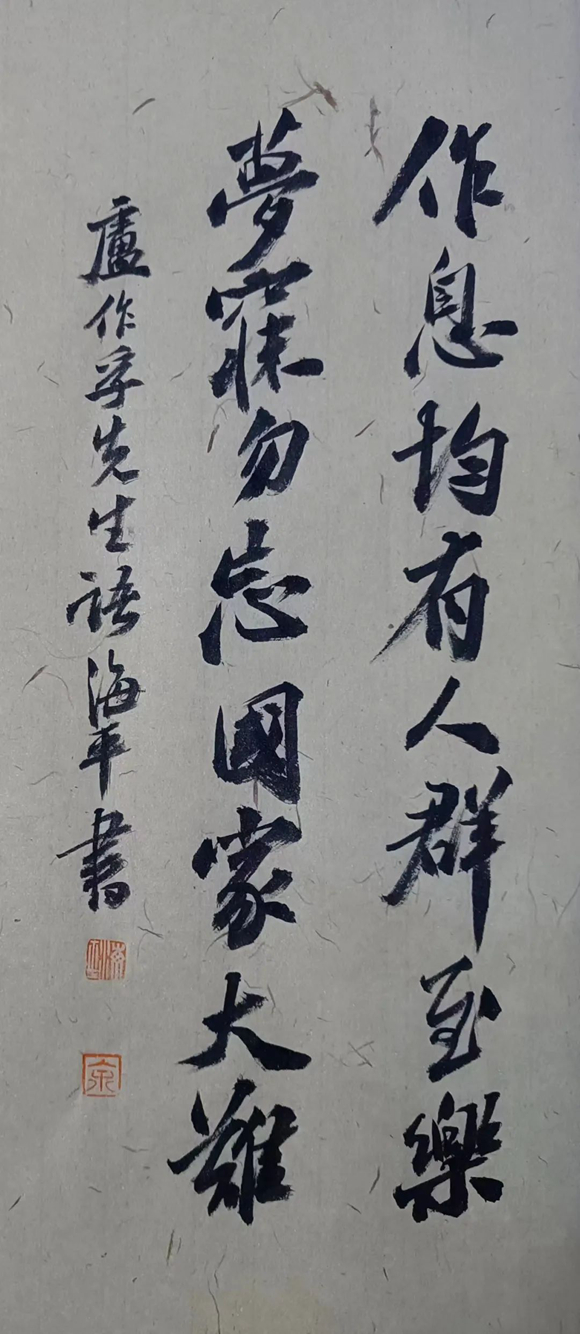 作息均有人群至樂
夢寐勿忘國家大難
盧作孚先生語海平書